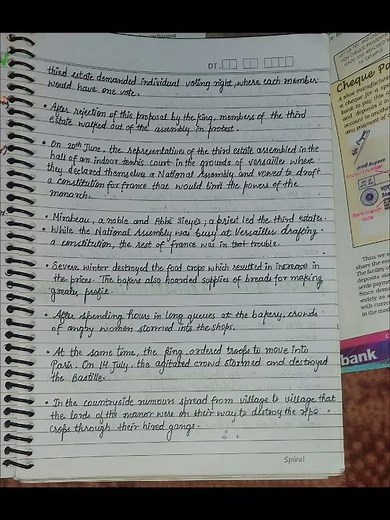 DT.
third estate demanded individual voting right, where each member
would have one vote.
• After rejection of this proposal by the king, members of the third
estate walked out of the assembly in protest.
• On 20th June, the representatives of the third estate assembled in the
hall of an indoor tennis court in the grounds of Versailles where
they declared themselves a National Assembly and vowed to draft
a constitution for france that would limit the powers of the
monarch.
• Mirabeau, a noble and Abbé Sieyès, a priest led the third estate.
• While the National Assembly was busy at Versailles drafting
a constitution, the rest of france was in trouble.
• Severe winter destroyed the food crops which resulted in increase in
the prices. The bakers also hoarded supplies of breads for making
greater profit.
• After spending hours in long queues at the bakery, crowds
of angry women stormed into the shops.
• At the same time, the king ordered troops to move into
Paris. On 14 July, the agitated crowd stormed and destroyed
the Bastille.
• In the countryside rumours spread from village to village that
the lords of the manor were on their way to destroy the ripe
crops through their hired gangs.
Spiral
Cheque Pa
bank